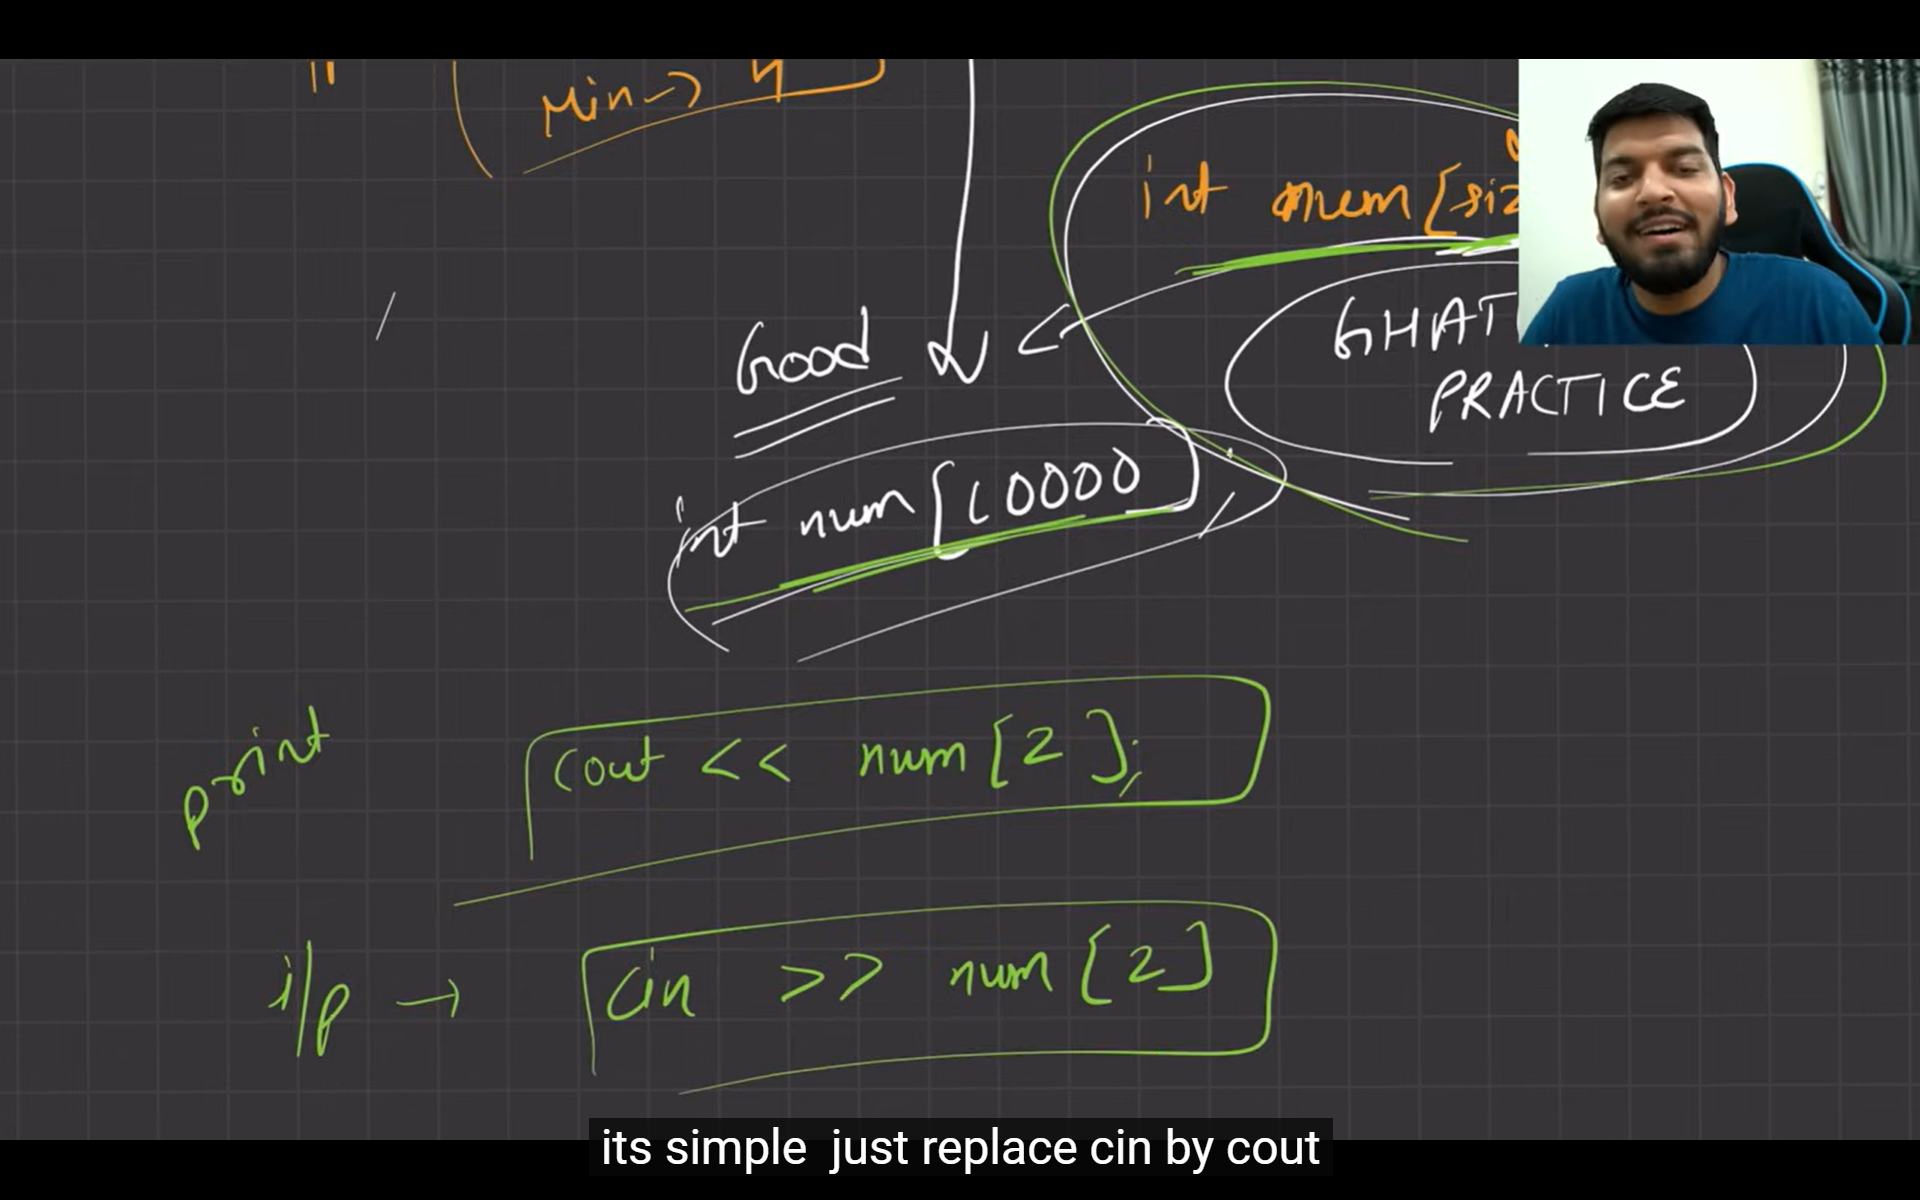 Min → 4
int num [siz
GHAT
PRACTICE
Good
int num [10000]
print
cout << num [2];
i/p → cin >> num [2]
its simple just replace cin by cout